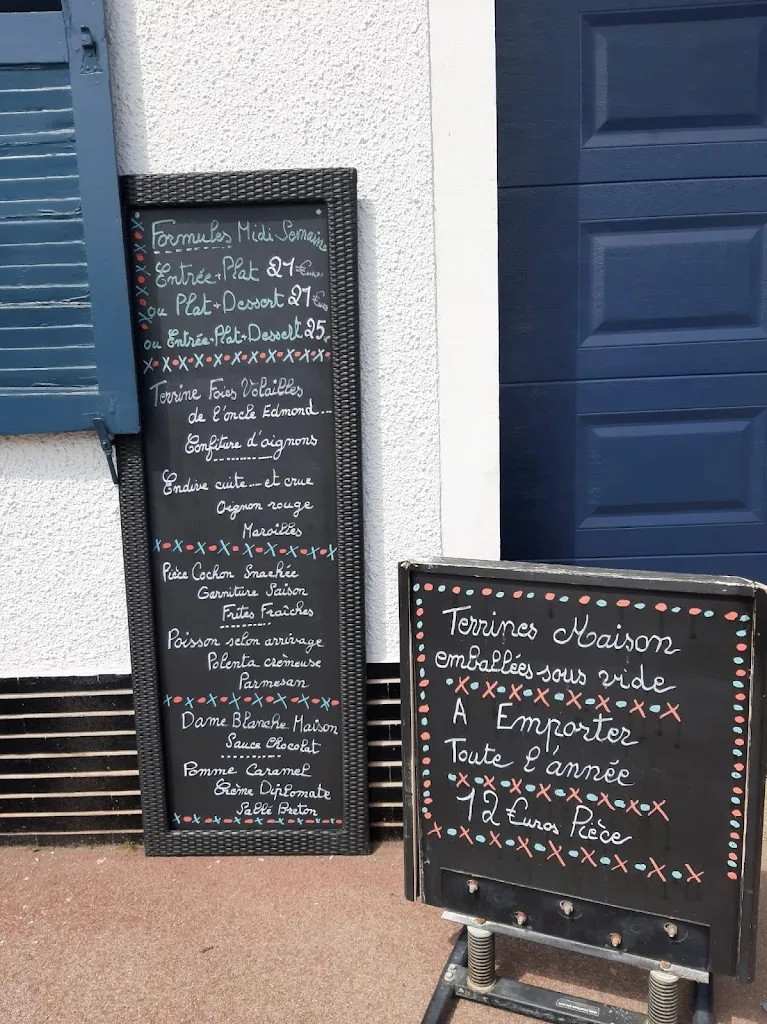 Formules Midi Semaine
Entrée+Plat 21 €uros
ou Plat+Dessert 21 €uros
ou Entrée+Plat+Dessert 25
Terrine Foies Volailles
de l'oncle Edmond...
Confiture d'oignons
Endive cuite... et crue
Oignon rouge
Maroilles
Pièce Cochon Snackée
Garniture Saison
Frites Fraîches
Poisson selon arrivage
Polenta crèmeuse
Parmesan
Dame Blanche Maison
Sauce Chocolat
Pomme Caramel
Crème Diplomate
Sablé Breton
Terrines Maison
emballées sous vide
A Emporter
Toute l'année
12 €uros Pièce